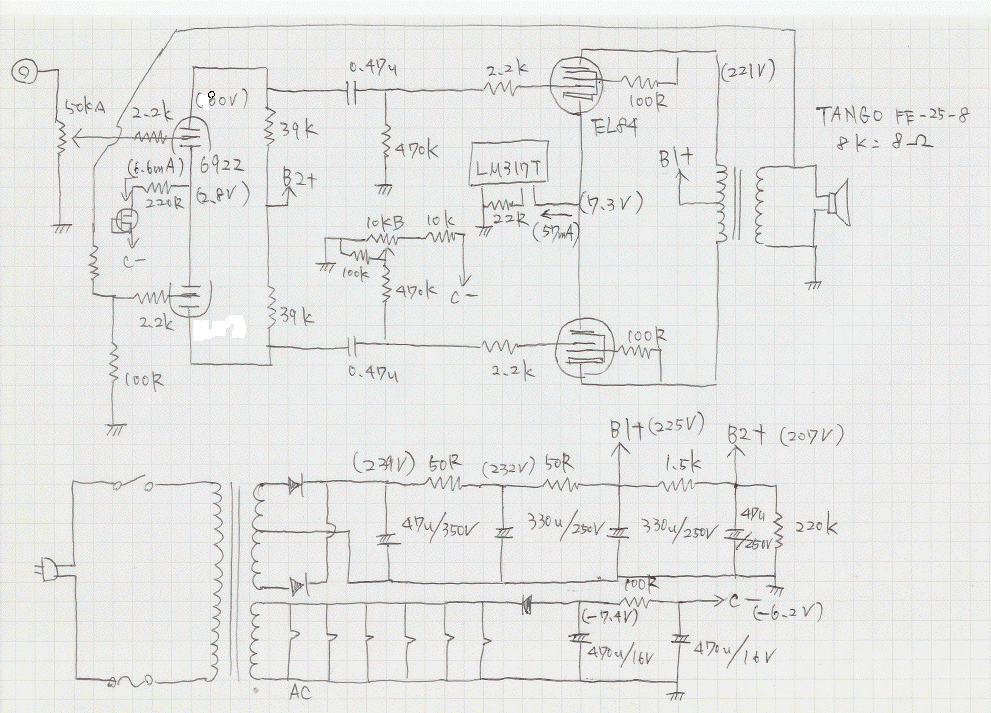 0.47u
2.2k
(221V)
100R
EL84
TANGO FE-25-8
8k = 8Ω
50kA
2.2k
(80V)
39k
470k
LM317T
B1+
(6.6mA)
6922
B2+
220R
(2.8V)
22R
(7.3V)
(57mA)
10kB
10k
100k
C-
470k
C-
2.2k
39k
100R
100R
0.47u
2.2k
B1+ (225V)
B2+ (207V)
(239V)
50R
(232V)
50R
1.5k
47u/350V
330u/250V
330u/250V
47u
/250V
220k
100R
C-
(-7.4V)
(-6.2V)
470u/16V
470u/16V
AC